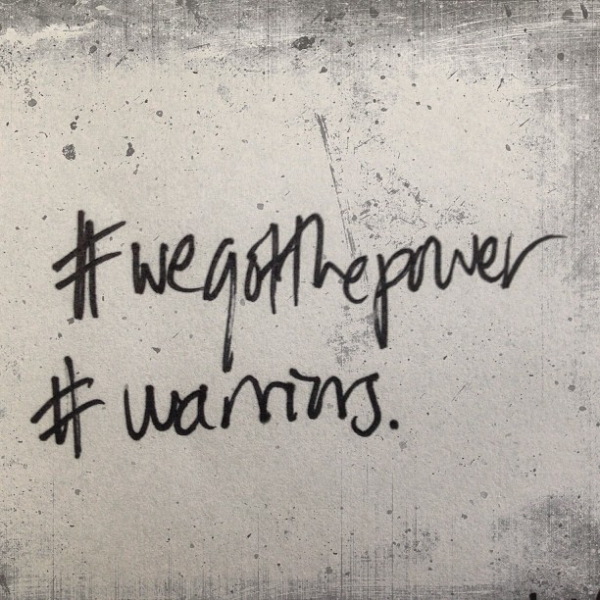 #wegotthepower
# warriors.